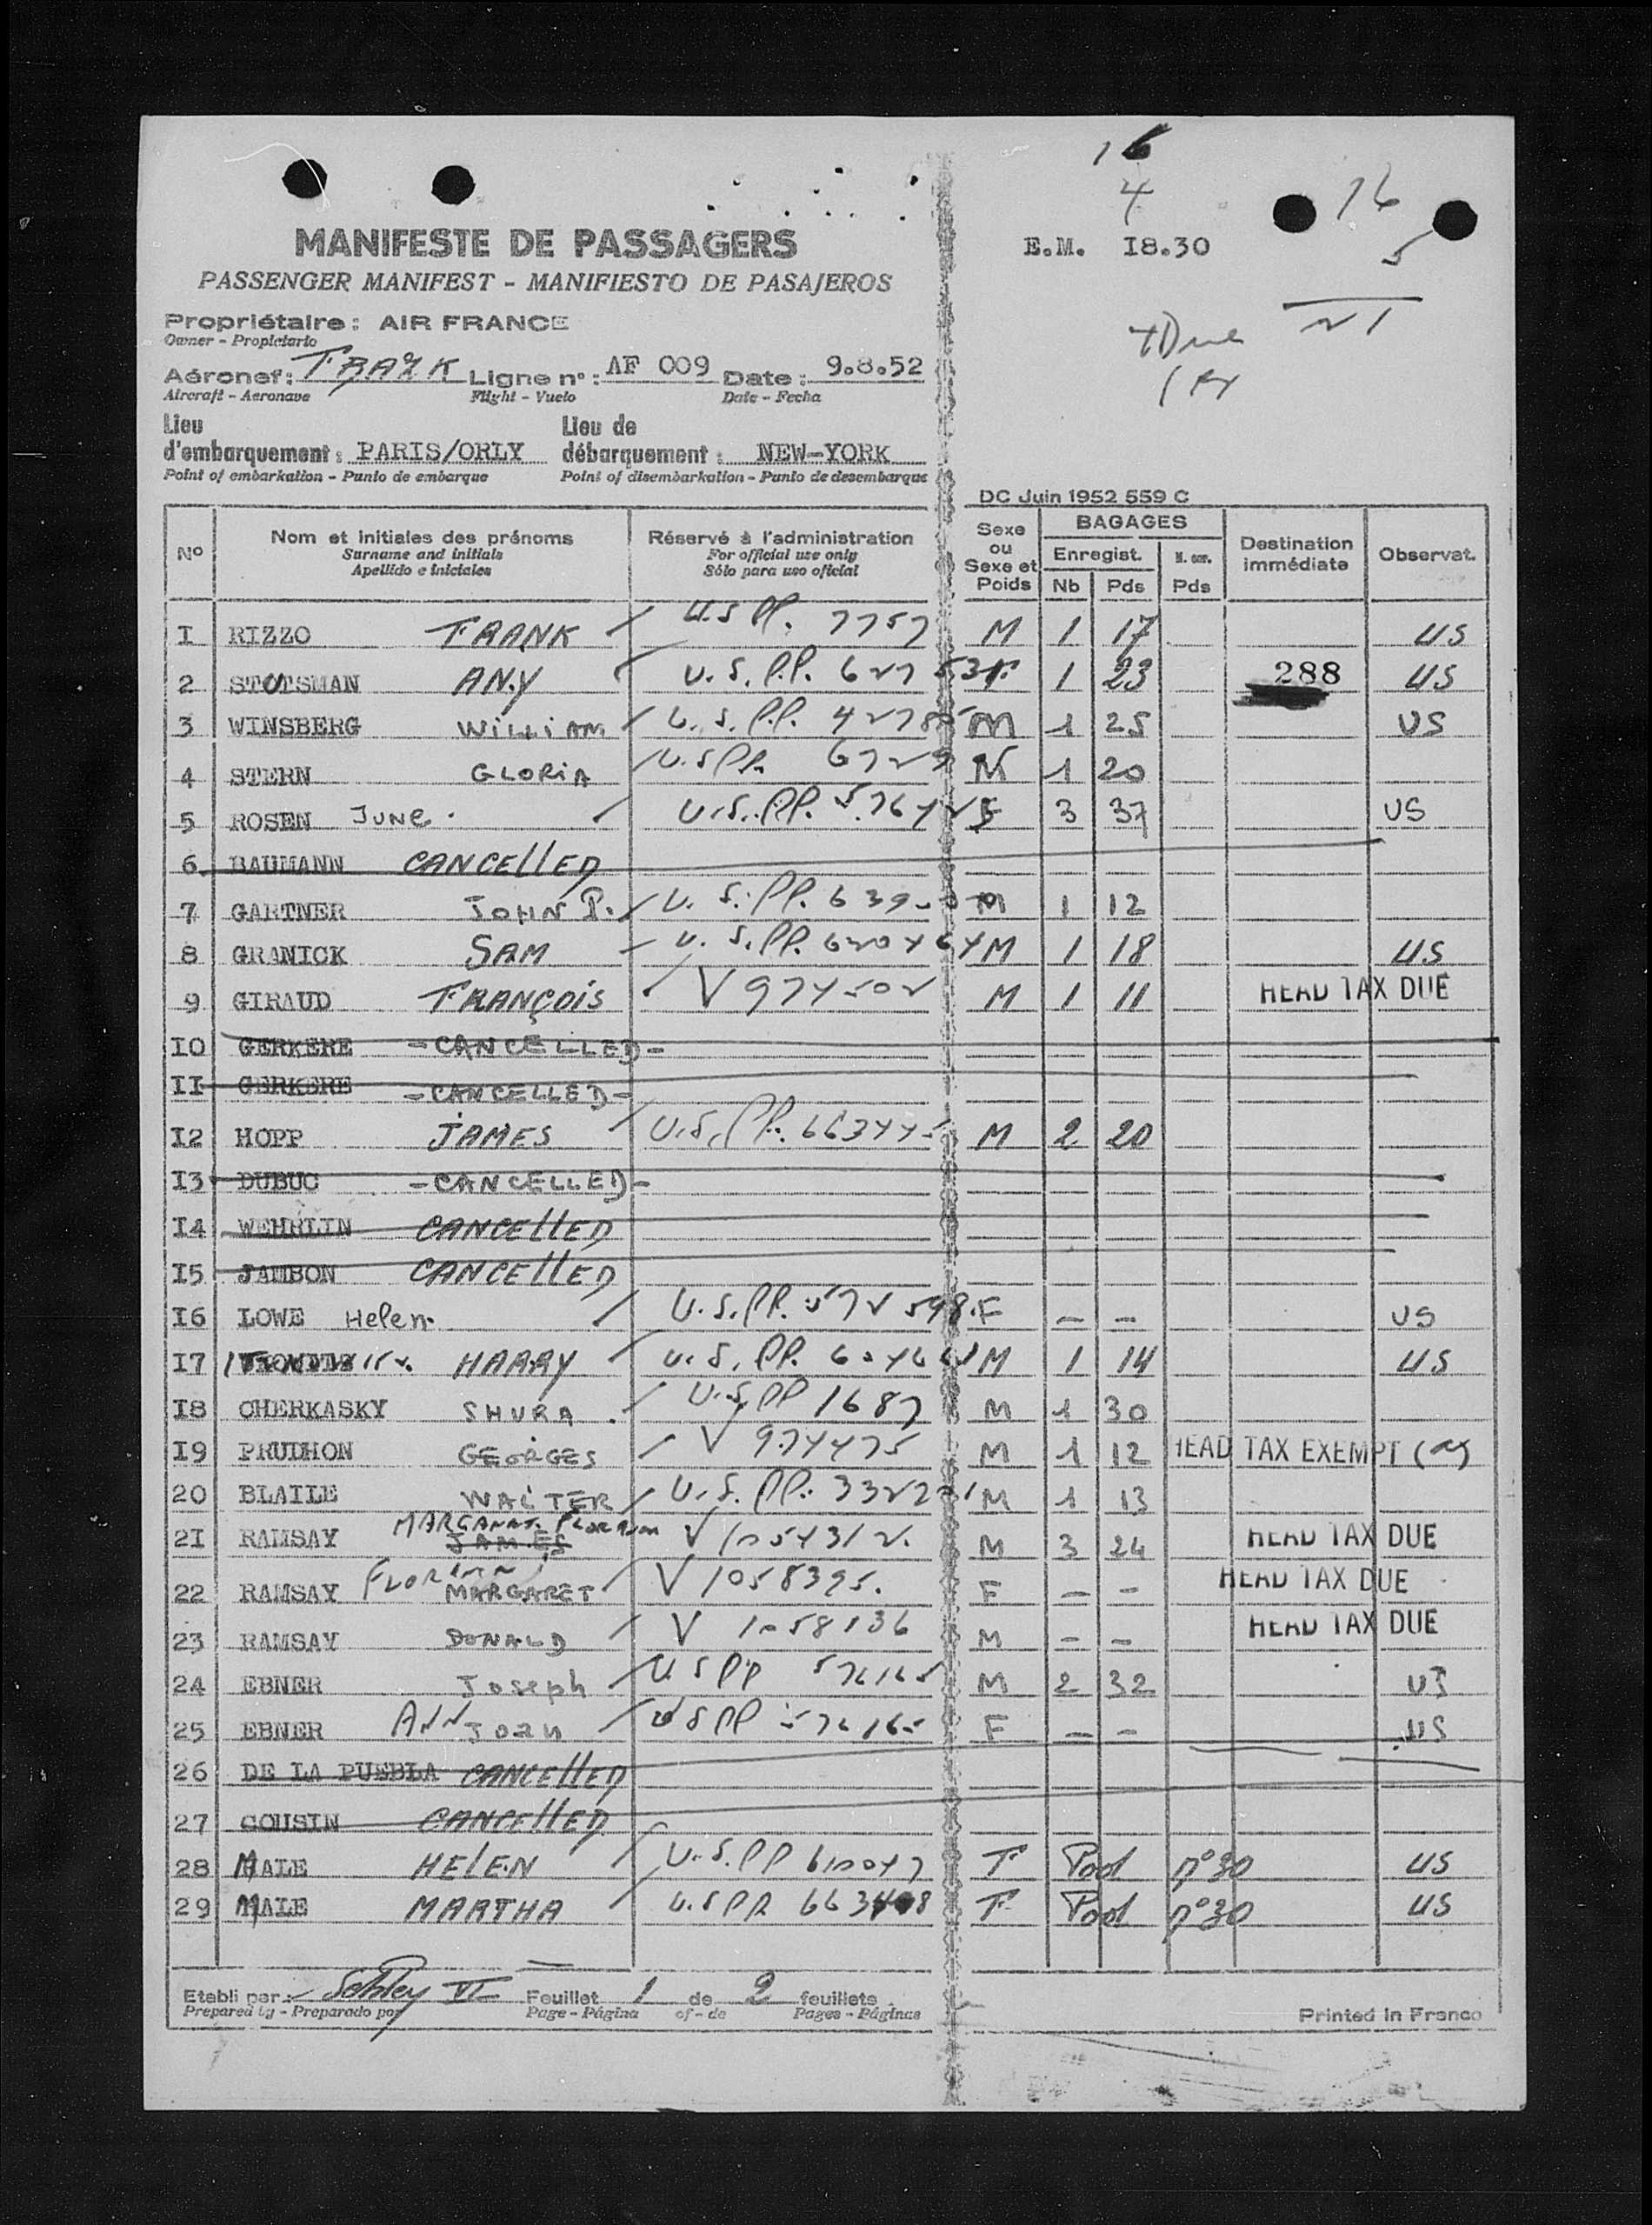 16
4
16
5
21
E.M. I8.30
4 Due
1 ex
MANIFESTE DE PASSAGERS
PASSENGER MANIFEST - MANIFIESTO DE PASAJEROS
Propriétaire : AIR FRANCE
Owner - Propietario
Aéronef : Ligne n° : AF 009 Date : 9.8.52
Aircraft - Aeronave Flight - Vuelo Date - Fecha
Lieu d'embarquement : PARIS/ORLY Lieu de débarquement : NEW-YORK
Point of embarkation - Punto de embarque Point of disembarkation - Punto de desembarque
DC Juin 1952 559 C
N° Nom et initiales des prénoms Réservé à l'administration Sexe ou Sexe et Poids BAGAGES Destination immédiate Observat.
Surname and initials For official use only Enregist.
Apellido e iniciales Sólo para uso oficial Nb Pds Pds
I RIZZO FRANK U.S PP. 7757 M 1 17 US
2 STUTSMAN ANY U.S.P.P. 1 23 288 US
3 WINSBERG WILLIAM U.S.P.P. M 1 25 US
4 STERN GLORIA U.S PP. 1 20
5 ROSEN June. U.S.PP. F 3 37 US
6 BAUMANN CANCELLED
7 GARTNER JOHN P. U.S.PP. M 1 12
8 GRANICK SAM U.S.PP. M 1 18 US
9 GIRAUD FRANÇOIS V 974502 M 1 11 HEAD TAX DUE
I0 GERKERE -CANCELLED-
II GERKERE -CANCELLED-
I2 HOPP JAMES U.S.PP. M 2 20
I3 DUBUC -CANCELLED-
I4 WEHRLIN CANCELLED
I5 JAMBON CANCELLED
I6 LOWE Helen U.S.PP. 572598 F - - US
I7 HARRY U.S.PP. M 1 14 US
I8 CHERKASKY SHURA U.S PP 1687 M 1 30
I9 PRUDHON GEORGES V 974475 M 1 12 HEAD TAX EXEMPT
20 BLAILE WALTER U.S.PP. M 1 13
2I RAMSAY JAMES MARGARET FLORINN V 1054312 M 3 24 HEAD TAX DUE
22 RAMSAY FLORINN MARGARET V 1058395. F - - HEAD TAX DUE
23 RAMSAY DONALD V 1058136 M - - HEAD TAX DUE
24 EBNER Joseph U S PP 576165 M 2 32 US
25 EBNER ANN JOAN U S PP 576165 F - - US
26 DE LA PUEBLA CANCELLED
27 COUSIN CANCELLED
28 MALE HELEN U.S.PP 610047 F Pool n°30 US
29 MALE MARTHA U.S PP 663408 F Pool n°30 US
Etabli par : Feuillet 1 de 2 feuillets
Prepared by - Preparado por Page - Página of - de Pages - Páginas
Printed in France